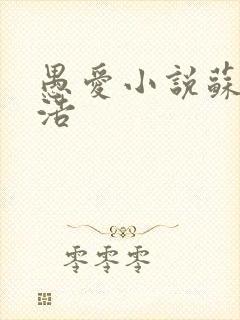 愚愛小説蘇
活
零零零